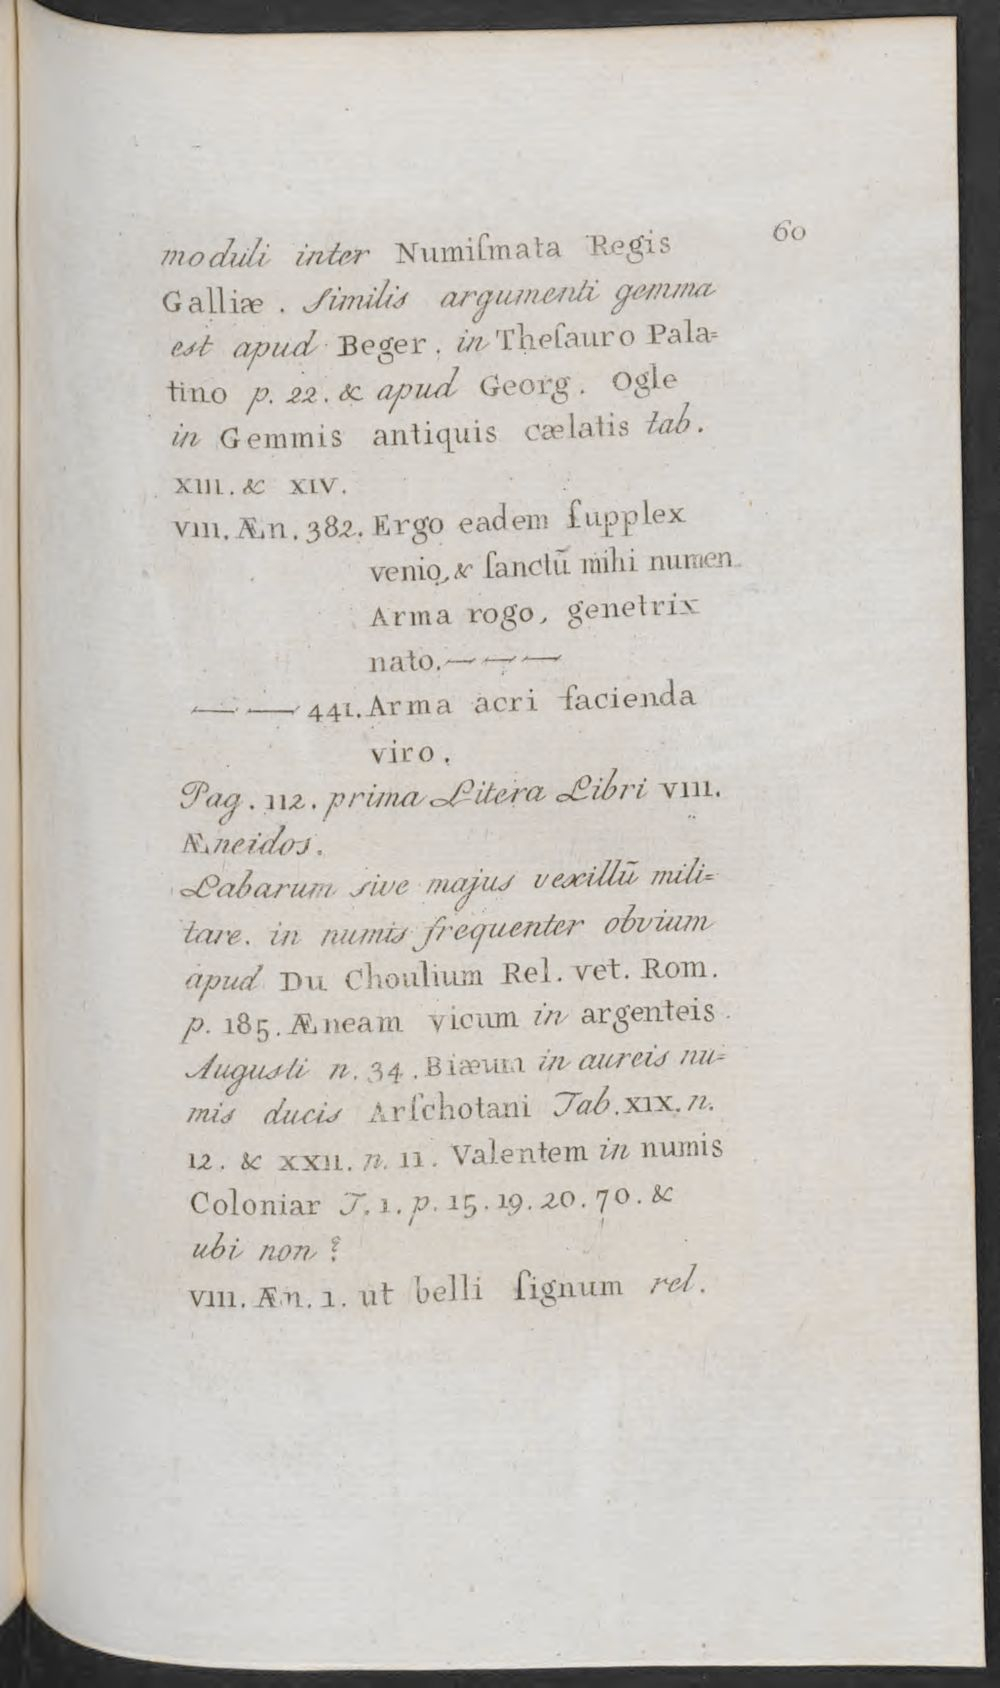 60
moduli inter Numiſmata Regis
Galliæ . Similis argumenti gemma
est apud Beger. in Theſauro Pala=
tino p. 22. & apud Georg. Ogle
in Gemmis antiquis cælatis tab.
XIII. & XIV.
VIII. Æn. 382. Ergo eadem ſupplex
venio, & ſanctū mihi numen
Arma rogo, genetrix
nato. — — —
— — 441. Arma acri facienda
viro.
Pag. 112. prima Litera Libri VIII.
Æneidos.
Labarum sive majus vexillū mili=
tare. in numis frequenter obvium
apud Du Choulium Rel. vet. Rom.
p. 185. Æneam vicum in argenteis
Augusti n. 34. Biæum in aureis nu=
mis ducis Arſchotani Tab. XIX. n.
12. & XXII. n. 11. Valentem in numis
Coloniar T. 1. p. 15. 19. 20. 70. &
ubi non ?
VIII. Æn. 1. ut belli ſignum rel.